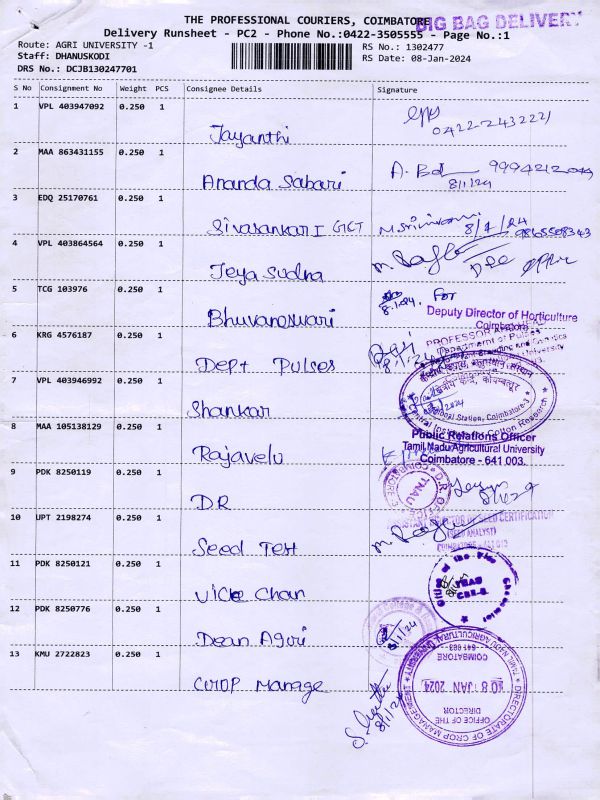 THE PROFESSIONAL COURIERS, COIMBATORE
BIG BAG DELIVERY
Delivery Runsheet - PC2 - Phone No.:0422-3505555 - Page No.:1
Route: AGRI UNIVERSITY -1
RS No.: 1302477
Staff: DHANUSKODI
RS Date: 08-Jan-2024
DRS No.: DCJB130247701
S No Consignment No Weight PCS Consignee Details Signature
1 VPL 403947092 0.250 1
Jayanthi
0422-2432221
2 MAA 863431155 0.250 1
Ananda Sabari
8/1/24
3 EDQ 25170761 0.250 1
Sivasankari GICT
8/1/24
4 VPL 403864564 0.250 1
Jeya Sudha
5 TCG 103976 0.250 1
Bhuvaneswari
8.1.24. For
Deputy Director of Horticulture
Coimbatore
6 KRG 4576187 0.250 1
Dept. Pulses
PROFESSOR
Department of Pulses
7 VPL 403946992 0.250 1
Shankar
Regional Station, Coimbatore-3
Cotton Research
8 MAA 105138129 0.250 1
Rajavelu
Public Relations Officer
Tamil Nadu Agricultural University
Coimbatore - 641 003.
9 PDK 8250119 0.250 1
DR
D.R. OFFICE
TNAU
COIMBATORE
10 UPT 2198274 0.250 1
Seed Test
SEED CERTIFICATION
(SEED ANALYST)
11 PDK 8250121 0.250 1
Vice Chan
Office of the Vice Chancellor
TNAU
CBE-3
12 PDK 8250776 0.250 1
Dean Agri
8/1/24
13 KMU 2722823 0.250 1
Crop Manage
8/1/24
DIRECTORATE OF CROP MANAGEMENT
TAMIL NADU AGRICULTURAL UNIVERSITY
OFFICE OF THE
DIRECTOR
08 JAN 2024
COIMBATORE
641 003